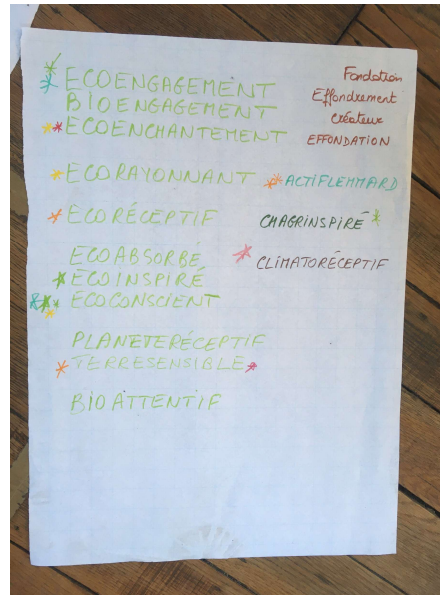 ECOENGAGEMENT
BIOENGAGEMENT
ECOENCHANTEMENT
ECORAYONNANT
ECORÉCEPTIF
ECOABSORBÉ
ECOINSPIRÉ
ECOCONSCIENT
PLANETERÉCEPTIF
TERRESENSIBLE
BIOATTENTIF
Fondation
Effondrement
créateur
EFFONDATION
ACTIFLEMMARD
CHAGRINSPIRÉ
CLIMATORÉCEPTIF